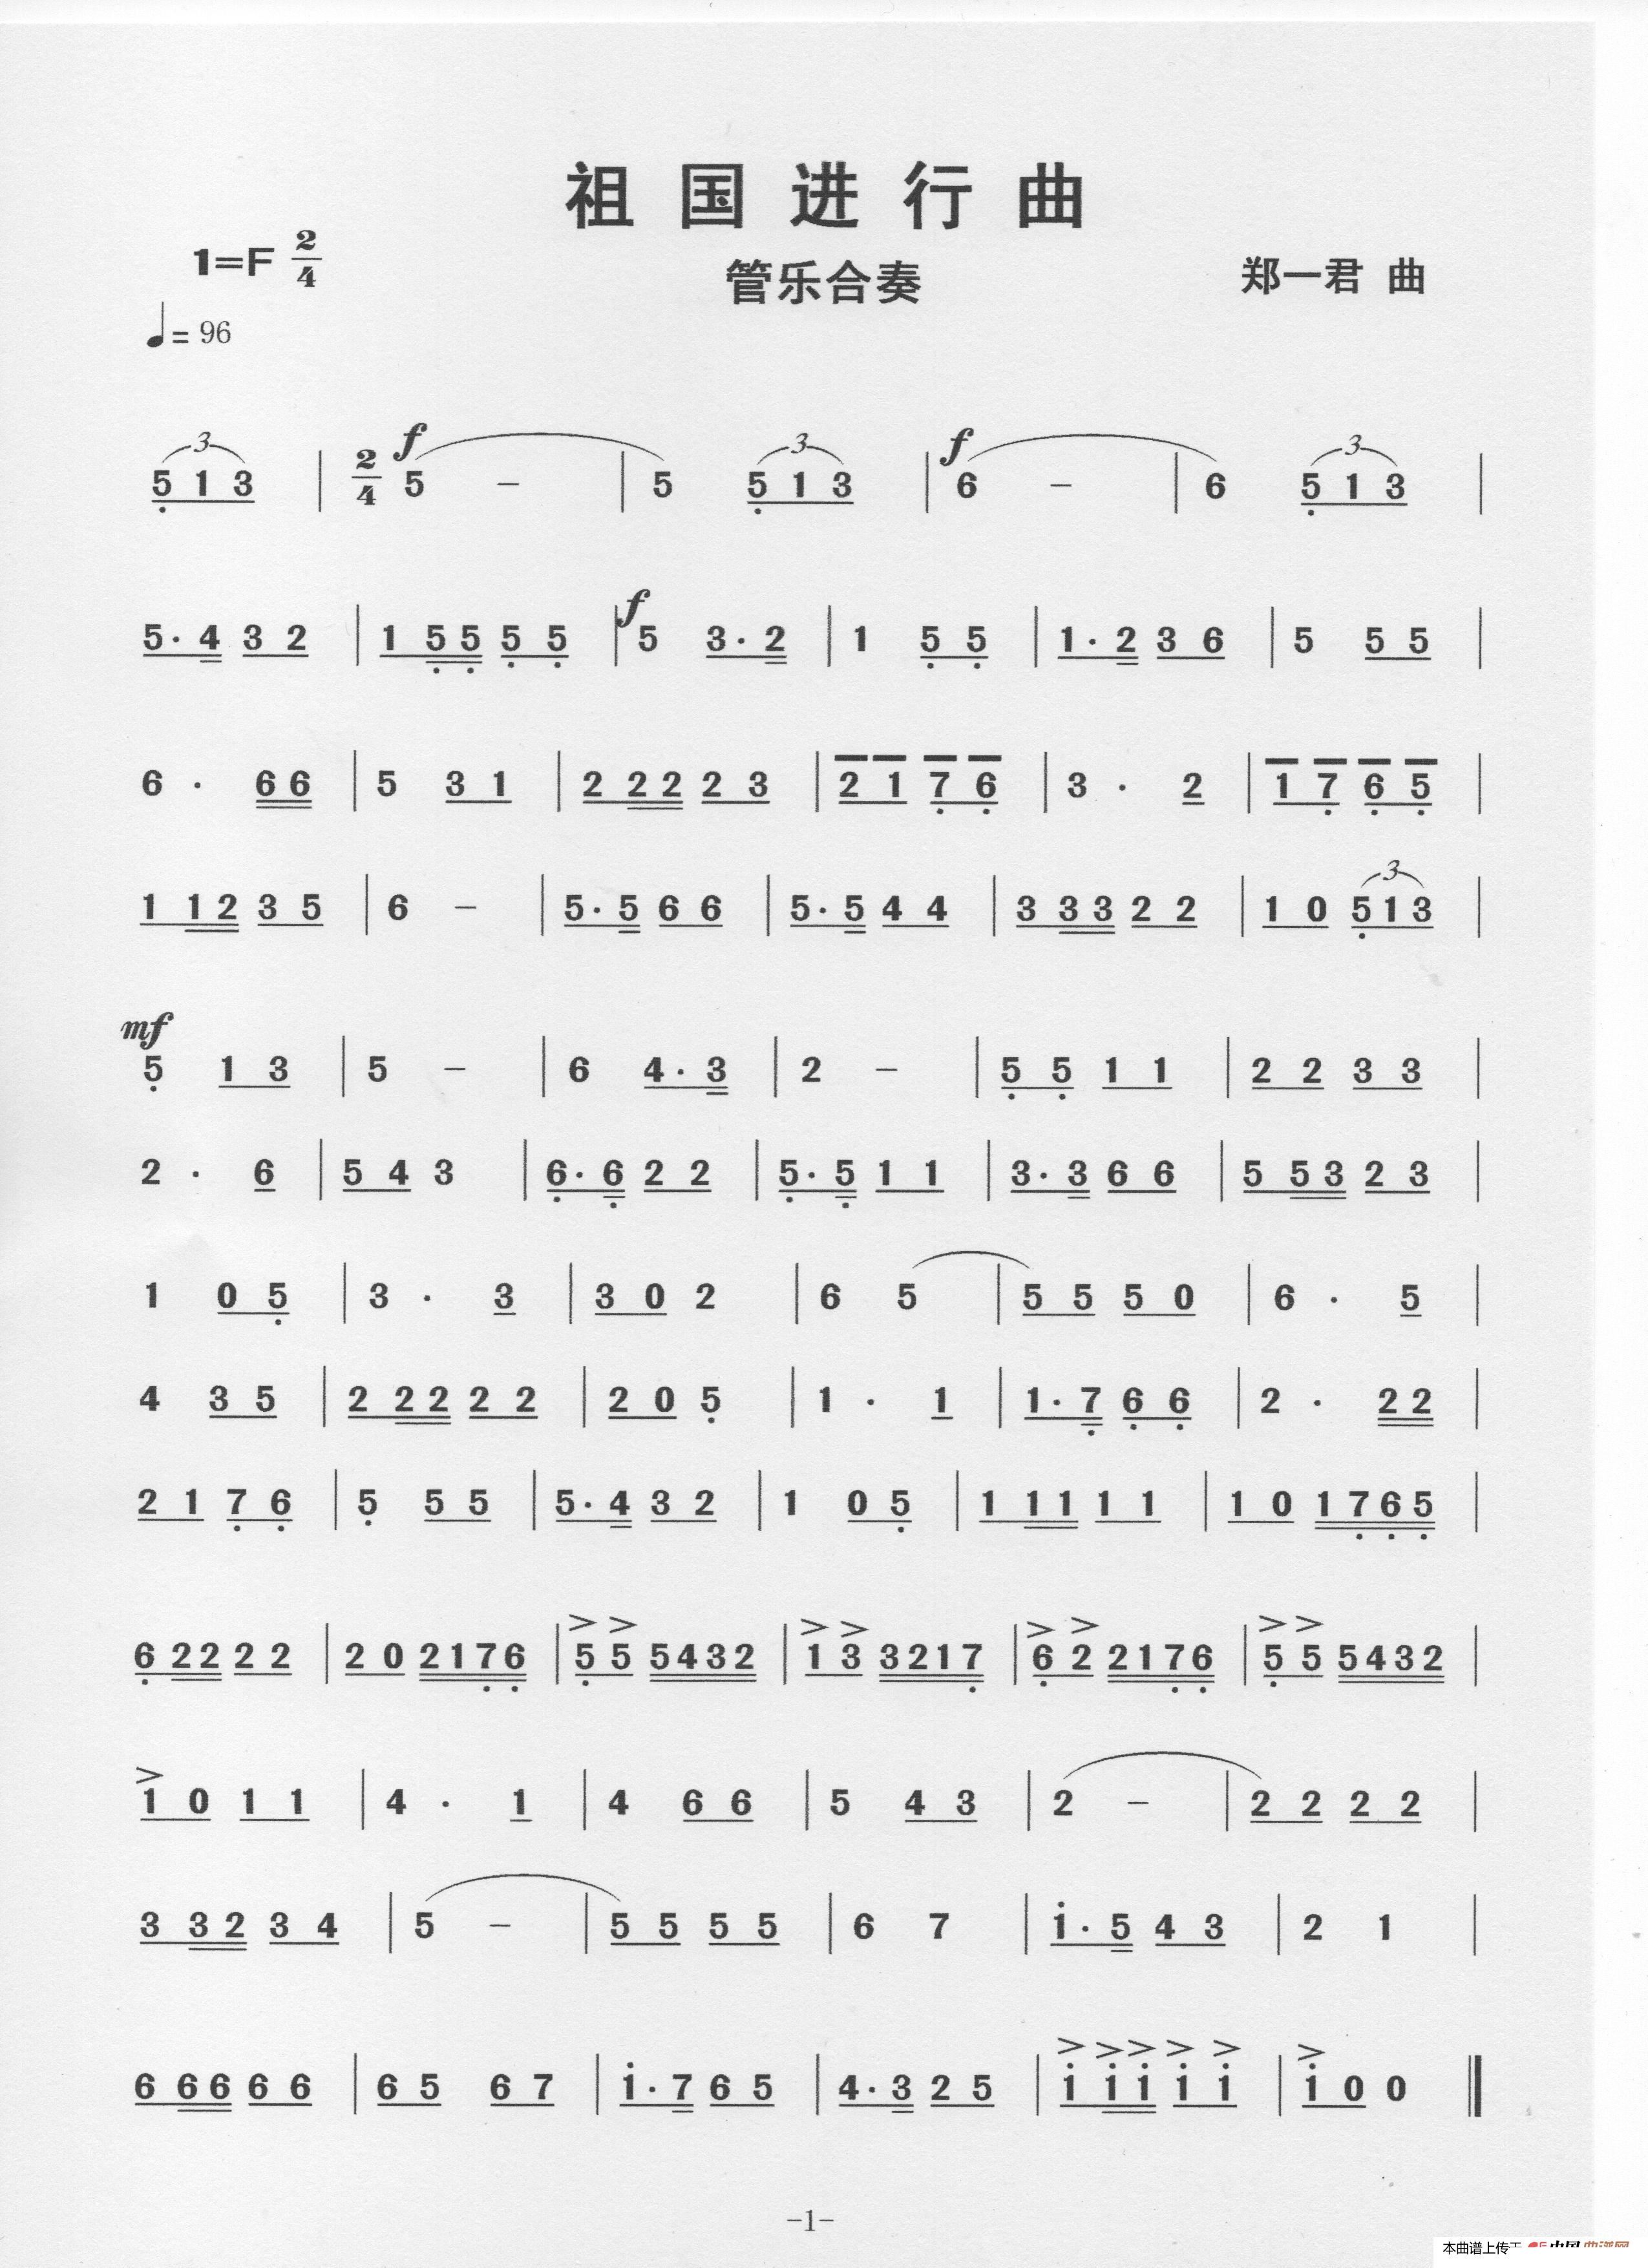 祖国进行曲
1=F 2/4
管乐合奏
郑一君 曲
♩= 96
3 f 3 f 3
5 1 3 | 2/4 5 – | 5 5 1 3 | 6 – | 6 5 1 3 |
f
5· 4 3 2 | 1 5 5 5 5 | 5 3· 2 | 1 5 5 | 1· 2 3 6 | 5 5 5 |
6 · 6 6 | 5 3 1 | 2 2 2 2 3 | 2 1 7 6 | 3 · 2 | 1 7 6 5 |
3
1 1 2 3 5 | 6 – | 5· 5 6 6 | 5· 5 4 4 | 3 3 3 2 2 | 1 0 5 1 3 |
mf
5 1 3 | 5 – | 6 4· 3 | 2 – | 5 5 1 1 | 2 2 3 3 |
2 · 6 | 5 4 3 | 6· 6 2 2 | 5· 5 1 1 | 3· 3 6 6 | 5 5 3 2 3 |
1 0 5 | 3 · 3 | 3 0 2 | 6 5 | 5 5 5 0 | 6 · 5 |
4 3 5 | 2 2 2 2 2 | 2 0 5 | 1 · 1 | 1· 7 6 6 | 2 · 2 2 |
2 1 7 6 | 5 5 5 | 5· 4 3 2 | 1 0 5 | 1 1 1 1 1 | 1 0 1 7 6 5 |
> > > > > > > >
6 2 2 2 2 | 2 0 2 1 7 6 | 5 5 5 4 3 2 | 1 3 3 2 1 7 | 6 2 2 1 7 6 | 5 5 5 4 3 2 |
>
1 0 1 1 | 4 · 1 | 4 6 6 | 5 4 3 | 2 – | 2 2 2 2 |
3 3 2 3 4 | 5 – | 5 5 5 5 | 6 7 | 1· 5 4 3 | 2 1 |
> > > > > >
6 6 6 6 6 | 6 5 6 7 | 1· 7 6 5 | 4· 3 2 5 | 1 1 1 1 1 | 1 0 0 ‖
-1-
本曲谱上传于